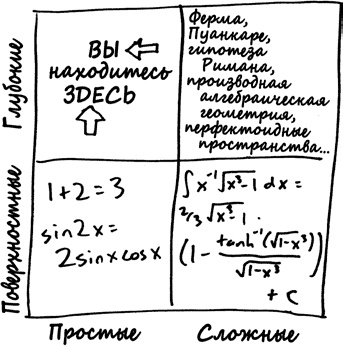 Глубокие
ВЫ
находитесь
ЗДЕСЬ
Ферма,
Пуанкаре,
гипотеза
Римана,
производная
алгебраическая
геометрия,
перфектоидные
пространства...
Поверхностные
1+2=3
sin2x=
2sinxcosx
∫x⁻¹√(x³-1) dx =
2/3 √(x³-1) ·
(1 - tanh⁻¹(√(1-x³))/√(1-x³))
+ C
Простые
Сложные